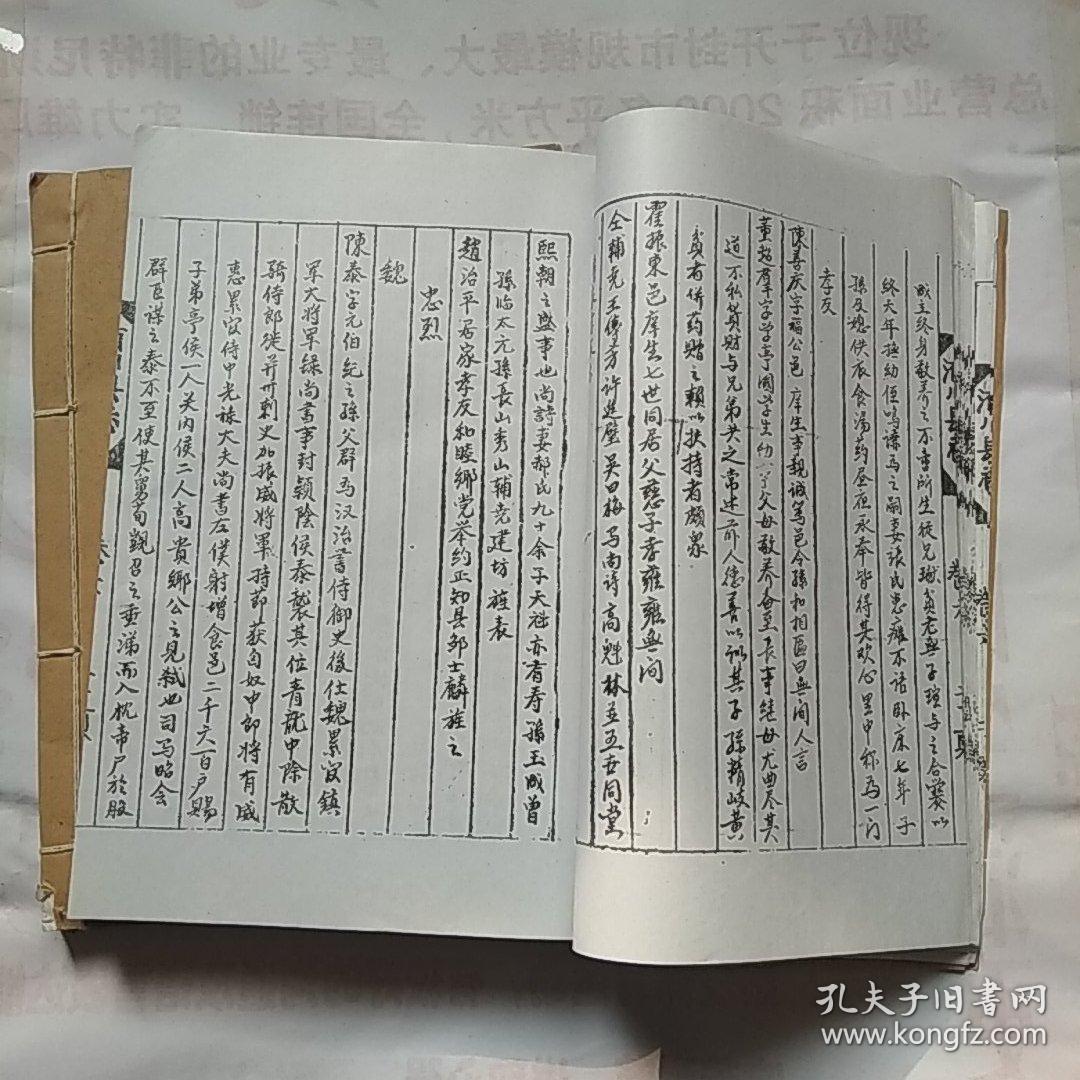 现位于开封市规模最大、最专业的菲特尼
总营业面积2000多平方米,全国连锁,实力雄
成主终身敬养之不啻所生從兄珹貧老無子瑄与之合爨以
終天年撫幼侄鳴謙為之嗣妻張氏患癱不語卧床七年子
孫及媳供衣食湯药昼夜承奉皆得其欢心里中称為一门
孝友
陳善庆字福公邑庠生事親诚篤邑令孫和相匾曰無间人言
董 羣字学亭國学生幼 父母敬养 至長事继母尤曲尽其
道不私貨財与兄弟共之常述前人德善以訓其子孫精岐黄
貧者併药贈之賴以扶持者頗衆
霍振東邑庠生七世同居父慈子孝雍雍無间
仝輔堯王傳芳許進璧吴曰梅马尚诗高魁林並五世同堂
熙朝之盛事也尚詩妻郝氏九十余子天祉亦有寿孫玉成曾
孫臨太元孫長山秀山輔堯建坊旌表
趙治平居家孝友和睦鄉党举约正知县邹士麟旌之
忠烈
魏
陳泰字元伯紀之孫父群為汉治書侍御史後仕魏累官鎮
军大将军録尚書事封颖陰侯泰襲其位青龍中除散
騎侍郎徙并州刺史加振威將軍持節获匈奴中郎將有威
惠累官侍中光祿大夫尚書左僕射增食邑二千六百户賜
子弟亭侯一人关内侯二人高貴鄉公之見弒也司马昭会
群臣谋之泰不至使其舅荀覬召之垂涕而入枕帝尸於股
洧川县志
卷六
孔夫子旧书网
www.kongfz.com